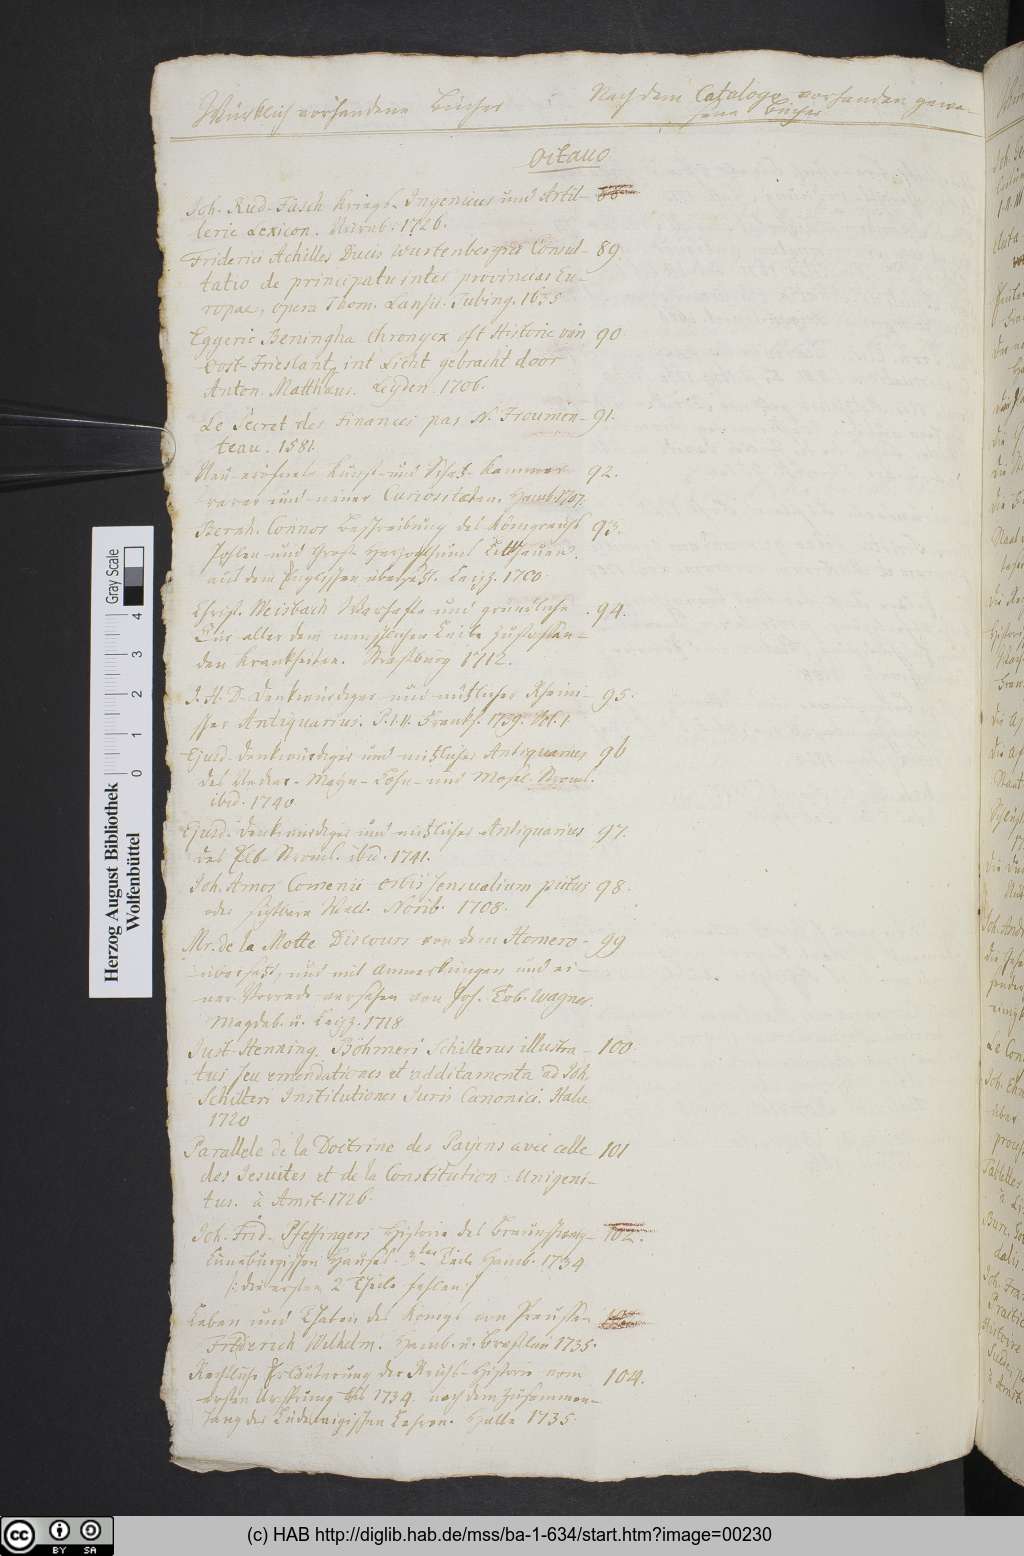 Würklich vorhandene Bücher
Nach dem Catalogo vorhanden gewe-
sene Bücher
Octavo
Joh. Rud. Fäsch Kriegs- Ingenieur und Artil-
lerie Lexicon. Nürnb. 1726.
Friderici Achilles Ducis Wurtenbergici Consul- 89.
tatio de principatu inter provincias Eu-
ropae, opera Thom. Lansii. Tubing. 1635
Eggeric Beningha Chronyck oft Historie van 90
Oost-Frieslant, int Licht gebracht door
Anton. Matthaus. Leyden. 1706.
Le Secret des Finances par N. Froumen- 91.
teau. 1581.
Neu-eröfnete Kunst- und Schatz-Kammer 92.
rarer und neuer Curiositæten. Hamb. 1707.
Bernh. Connor Beschreibung des Königreichs 93.
Pohlen und Gros-Herzogthums Litthauen.
aus dem Englischen übersetzt. Leipz. 1700
Christ. Weisbach Warhafte und gründliche 94.
Cur aller dem menschlichen Leibe zustossen-
den Krankheiten. Strasburg 1712.
J. H. D. Denkwürdiger und nützlicher Rheini- 95.
scher Antiquarius. P. I. II. Frankf. 1739. Vol. 1.
Ejusd. denkwürdiger und nützlicher Antiquarius 96
des Neckar- Mayn- Lohn- und Mosel-Stroms.
ibid. 1740
Ejusd. denkwürdiger und nützlicher Antiquarius 97.
des Elb-Stroms. ibid. 1741.
Joh. Amos Comenii orbis sensualium pictus 98.
oder sichtbare Welt. Norib. 1708.
Mr. de la Motte Discours von dem Homero 99
übersetzt, und mit Anmerkungen und ei-
ner Vorrede versehen von Joh. Tob. Wagner
Magdeb. u. Leipz. 1718
Just. Henning. Böhmeri Schilterus illustra- 100.
tus seu emendationes et additamenta ad Joh.
Schilteri Institutiones Juris Canonici. Halae
1720
Parallele de la Doctrine des Payens avec celle 101
des Jesuites et de la Constitution: Unigeni-
tus. à Amst. 1726.
Joh. Frid. Pfeffingers Historie des Braunschweig- 102.
Lüneburgischen Hauses. 3ter Theil. Hamb. 1734
/: die ersten 2 Theile fehlen :/
Leben und Thaten des Königs von Preussen
Friderich Wilhelm. Hamb. u. Breslau 1735.
Erläuterung der Reichs-Historie vom 104.
ersten Ursprung bis 1734. nach dem Zusammen-
hang der Ludewigischen Lehren. Halle 1735.
Herzog August Bibliothek
Wolfenbüttel
0 1 2 3 4
Gray Scale
cc BY SA
(c) HAB http://diglib.hab.de/mss/ba-1-634/start.htm?image=00230